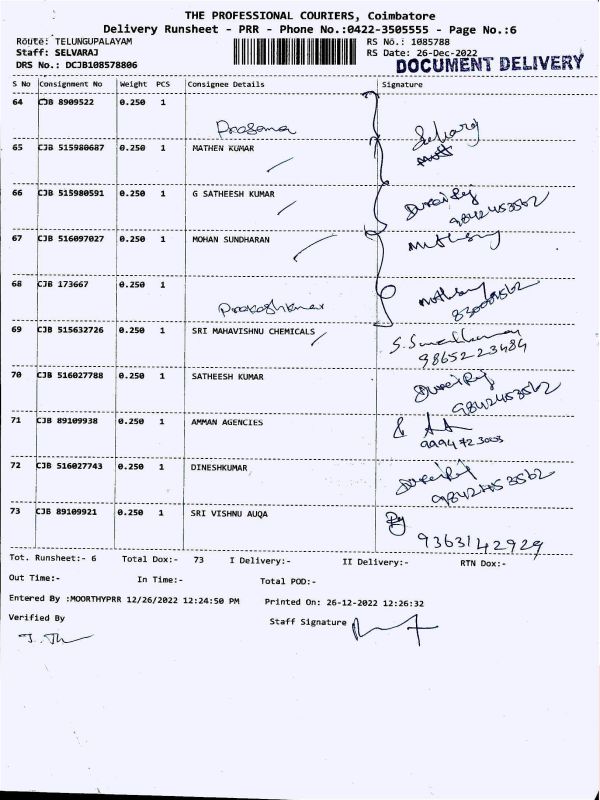 THE PROFESSIONAL COURIERS, Coimbatore
Delivery Runsheet - PRR - Phone No.:0422-3505555 - Page No.:6
Route: TELUNGUPALAYAM RS No.: 1085788
Staff: SELVARAJ RS Date: 26-Dec-2022
DRS No.: DCJB108578806 DOCUMENT DELIVERY
S No Consignment No Weight PCS Consignee Details Signature
64 CJB 8909522 0.250 1
65 CJB 515980687 0.250 1 MATHEN KUMAR
66 CJB 515980591 0.250 1 G SATHEESH KUMAR
9842453562
67 CJB 516097027 0.250 1 MOHAN SUNDHARAN
68 CJB 173667 0.250 1
Prakashkumar
69 CJB 515632726 0.250 1 SRI MAHAVISHNU CHEMICALS
9865223484
70 CJB 516027788 0.250 1 SATHEESH KUMAR
9842453562
71 CJB 89109938 0.250 1 AMMAN AGENCIES
72 CJB 516027743 0.250 1 DINESHKUMAR
9842453562
73 CJB 89109921 0.250 1 SRI VISHNU AUQA
9363142929
Tot. Runsheet:- 6 Total Dox:- 73 I Delivery:- II Delivery:- RTN Dox:-
Out Time:- In Time:- Total POD:-
Entered By :MOORTHYPRR 12/26/2022 12:24:50 PM Printed On: 26-12-2022 12:26:32
Verified By Staff Signature